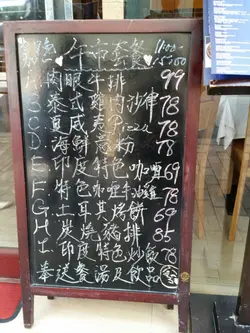 午市套餐 11:00-15:00
A. 肉眼牛排 99
B. 泰式雞肉沙律 78
C. 夾 Pizza 78
D. 海鮮意粉 78
E. 印度特色咖喱 69
F. 特色咖喱牛油雞 78
G. 土耳其烤餅 69
H. 炭燒豬排 85
I. 印度特色炒飯 78
奉送餐湯及飲品